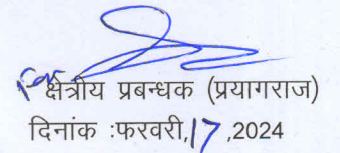 For क्षेत्रीय प्रबन्धक (प्रयागराज)
दिनांक :फरवरी,17,2024